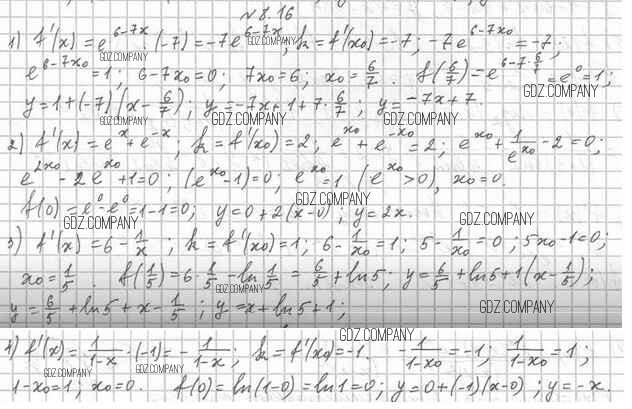 № 8.16
1) f'(x) = e^{6-7x} · (-7) = -7e^{6-7x}; k = f'(x₀) = -7; -7e^{6-7x₀} = -7;
e^{6-7x₀} = 1; 6-7x₀ = 0; 7x₀ = 6; x₀ = 6/7. f(6/7) = e^{6-7·6/7} = e⁰ = 1;
y = 1 + (-7)(x - 6/7); y = -7x + 1 + 7 · 6/7; y = -7x + 7.
2) f'(x) = e^x + e^{-x}; k = f'(x₀) = 2; e^{x₀} + e^{-x₀} = 2; e^{x₀} + 1/e^{x₀} - 2 = 0;
e^{2x₀} - 2e^{x₀} + 1 = 0; (e^{x₀} - 1) = 0; e^{x₀} = 1 (e^{x₀} > 0), x₀ = 0.
f(0) = e⁰ - e⁰ = 1 - 1 = 0; y = 0 + 2(x - 0); y = 2x.
3) f'(x) = 6 - 1/x; k = f'(x₀) = 1; 6 - 1/x₀ = 1; 5 - 1/x₀ = 0; 5x₀ - 1 = 0;
x₀ = 1/5 f(1/5) = 6 · 1/5 - ln 1/5 = 6/5 + ln5; y = 6/5 + ln5 + 1(x - 1/5);
y = 6/5 + ln5 + x - 1/5; y = x + ln5 + 1;
4) f'(x) = 1/(1-x) · (-1) = - 1/(1-x); k = f'(x₀) = -1. - 1/(1-x₀) = -1; 1/(1-x₀) = 1;
1-x₀ = 1; x₀ = 0. f(0) = ln(1-0) = ln1 = 0; y = 0 + (-1)(x-0); y = -x.
GDZ.COMPANY
GDZ.COMPANY
GDZ.COMPANY
GDZ.COMPANY
GDZ.COMPANY
GDZ.COMPANY
GDZ.COMPANY
GDZ.COMPANY
GDZ.COMPANY
GDZ.COMPANY
GDZ.COMPANY
GDZ.COMPANY
GDZ.COMPANY
GDZ.COMPANY